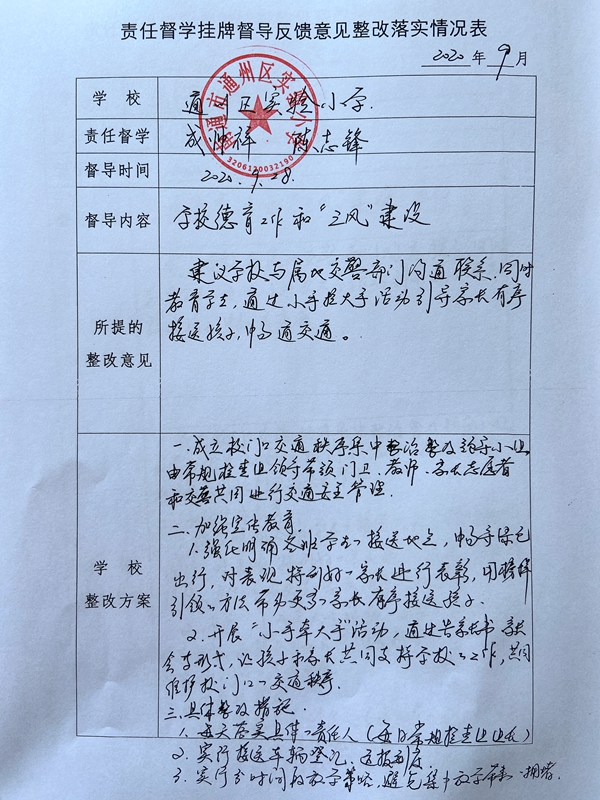 责任督学挂牌督导反馈意见整改落实情况表
2020 年 9 月
学 校 通州区实验小学.
南通市通州区实验小学
3206120032190
责任督学 成 祥 陈志锋
督导时间 2020.9.28.
督导内容 学校德育工作和“三风”建设
所提的
整改意见
建议学校与属地交警部门沟通联系.同时
教育学生,通过小手拉大手活动引导家长有序
接送孩子,畅通交通。
学 校
整改方案
一.成立校门口交通秩序集中整治整改领导小组,
由常规检查组领导带领门卫.教师.家长志愿者
和交警共同进行交通安全管理
二.加强宣传教育.
1.强化明确各班学生接送地点,倡导绿色
出行,对表现特别好的家长进行表彰,用榜样
引领的方法带动更多家长有序接送孩子.
2.开展“小手牵大手”活动,通过告家长书 家长
会等形式,让孩子和家长共同支持学校的工作,共同
维护校门口的交通秩序.
三.具体整改措施.
1.每天落实具体的责任人(每日常规检查组组长)
2.实行接送车辆登记,通报制度
3.实行分时间段放学策略,避免集中放学带来的拥堵.